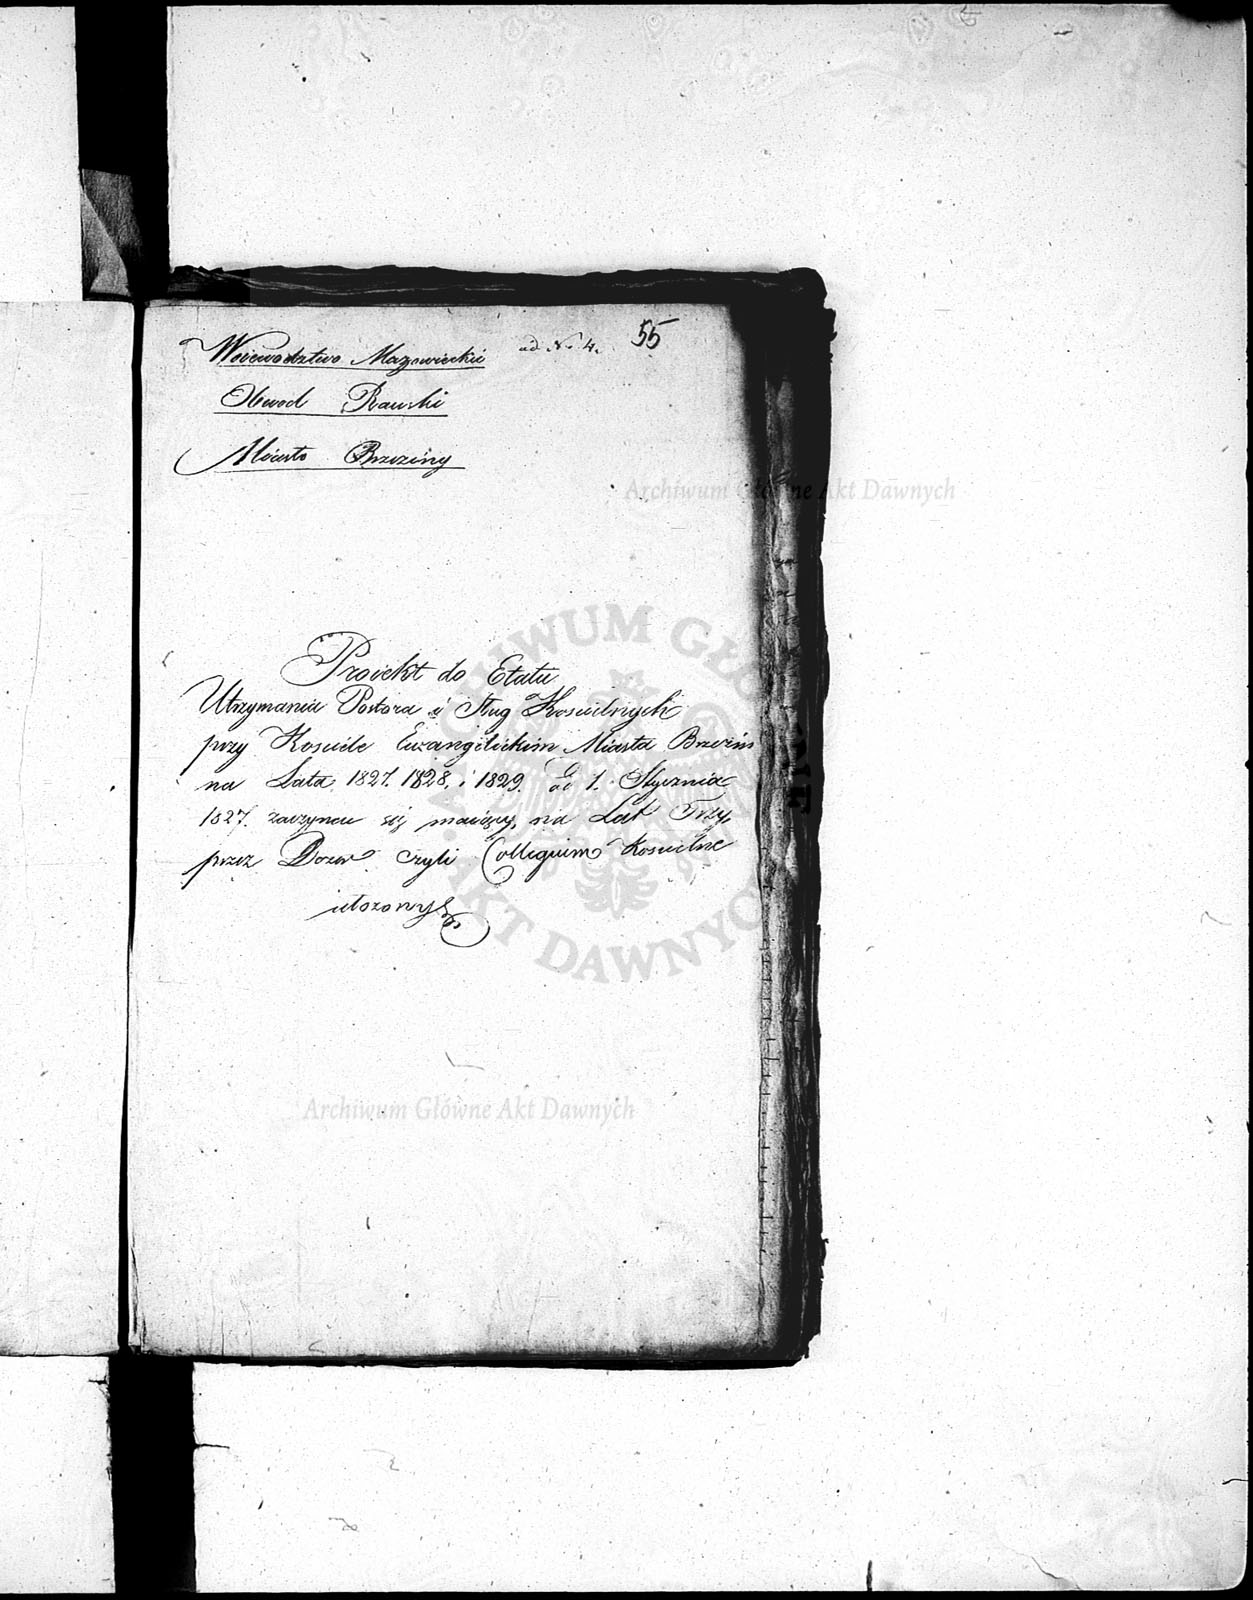 Woiewodztwo Mazowieckie
ad No 4.
55
Obwod Rawski
Miasto Brzeziny
Archiwum Główne Akt Dawnych
Proiekt do Etatu
Utrzymania Pastora i Sług Koscielnych
przy Kosciele Ewangelickim Miasta Brzezin
na Lata 1827. 1828, i 1829. od 1. Stycznia
1827. zaczynać się maiący, na Lat Trzy,
przez Dozor czyli Collegium Koscielne
ułozony
ARCHIWUM GŁÓWNE AKT DAWNYCH
Archiwum Główne Akt Dawnych